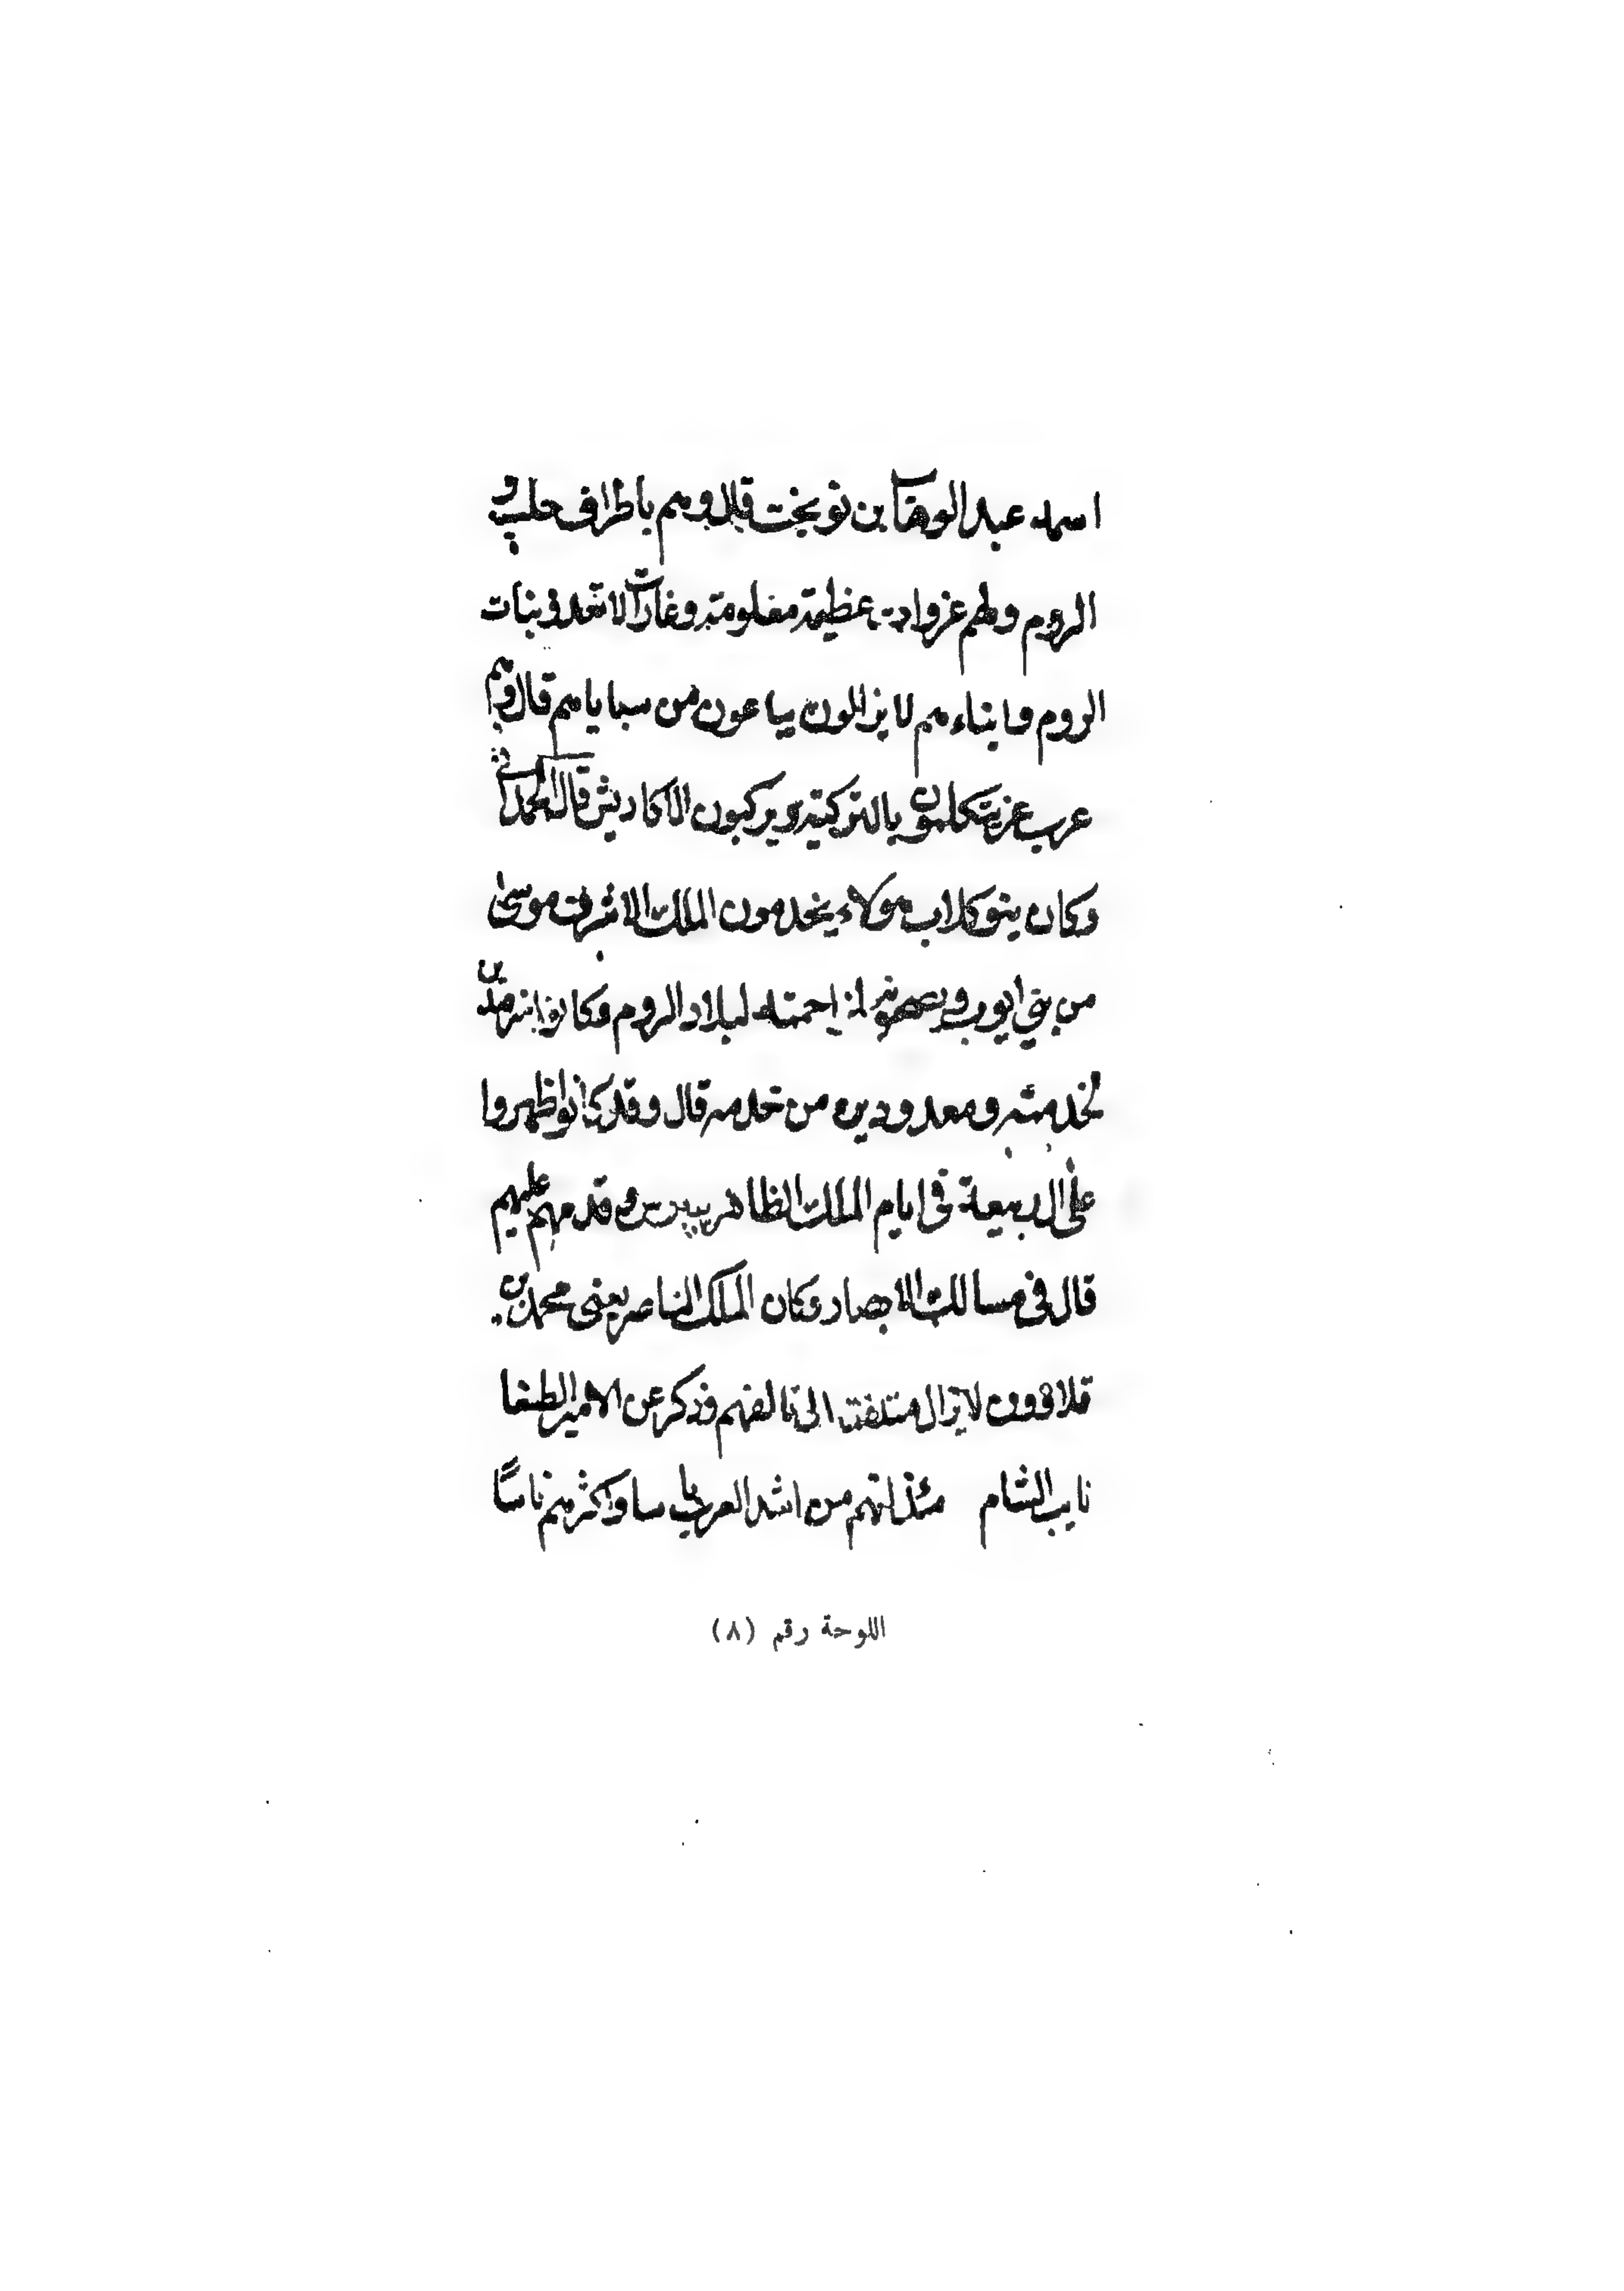 اسمه عبد الوهاب بن نوبخت قال وهم باطراف حلب و
الروم ولهم غزوات عظيمة معلومة وغارات لا تعد وبنات
الروم وابناءهم لا يزالون يباعون من سباياهم قال وهم
عرب غزيتكلمون بالتركية ويركبون الاكاديش قال الحمداني
وكان بنو كلاب هولاء يخدمون الملك الاشرف موسى
من بني ايوب ويصحبونه لبلاد الروم وكانوا
لخدمته ومعدودين من خدمه قال وقد كانوا ظهروا
على ال ربيعة في ايام الملك الظاهر بيبرس وقدمهم عليهم
قال في مسالك الابصار وكان الملك الناصر يعني محمد بن
قلاوون لا يزال متلفتا الى تالفهم وذكر عن الامير الطنبغا
نايب الشام انهم من اشد العرب باسا واكثرهم ناسًا
اللوحة رقم (٨)